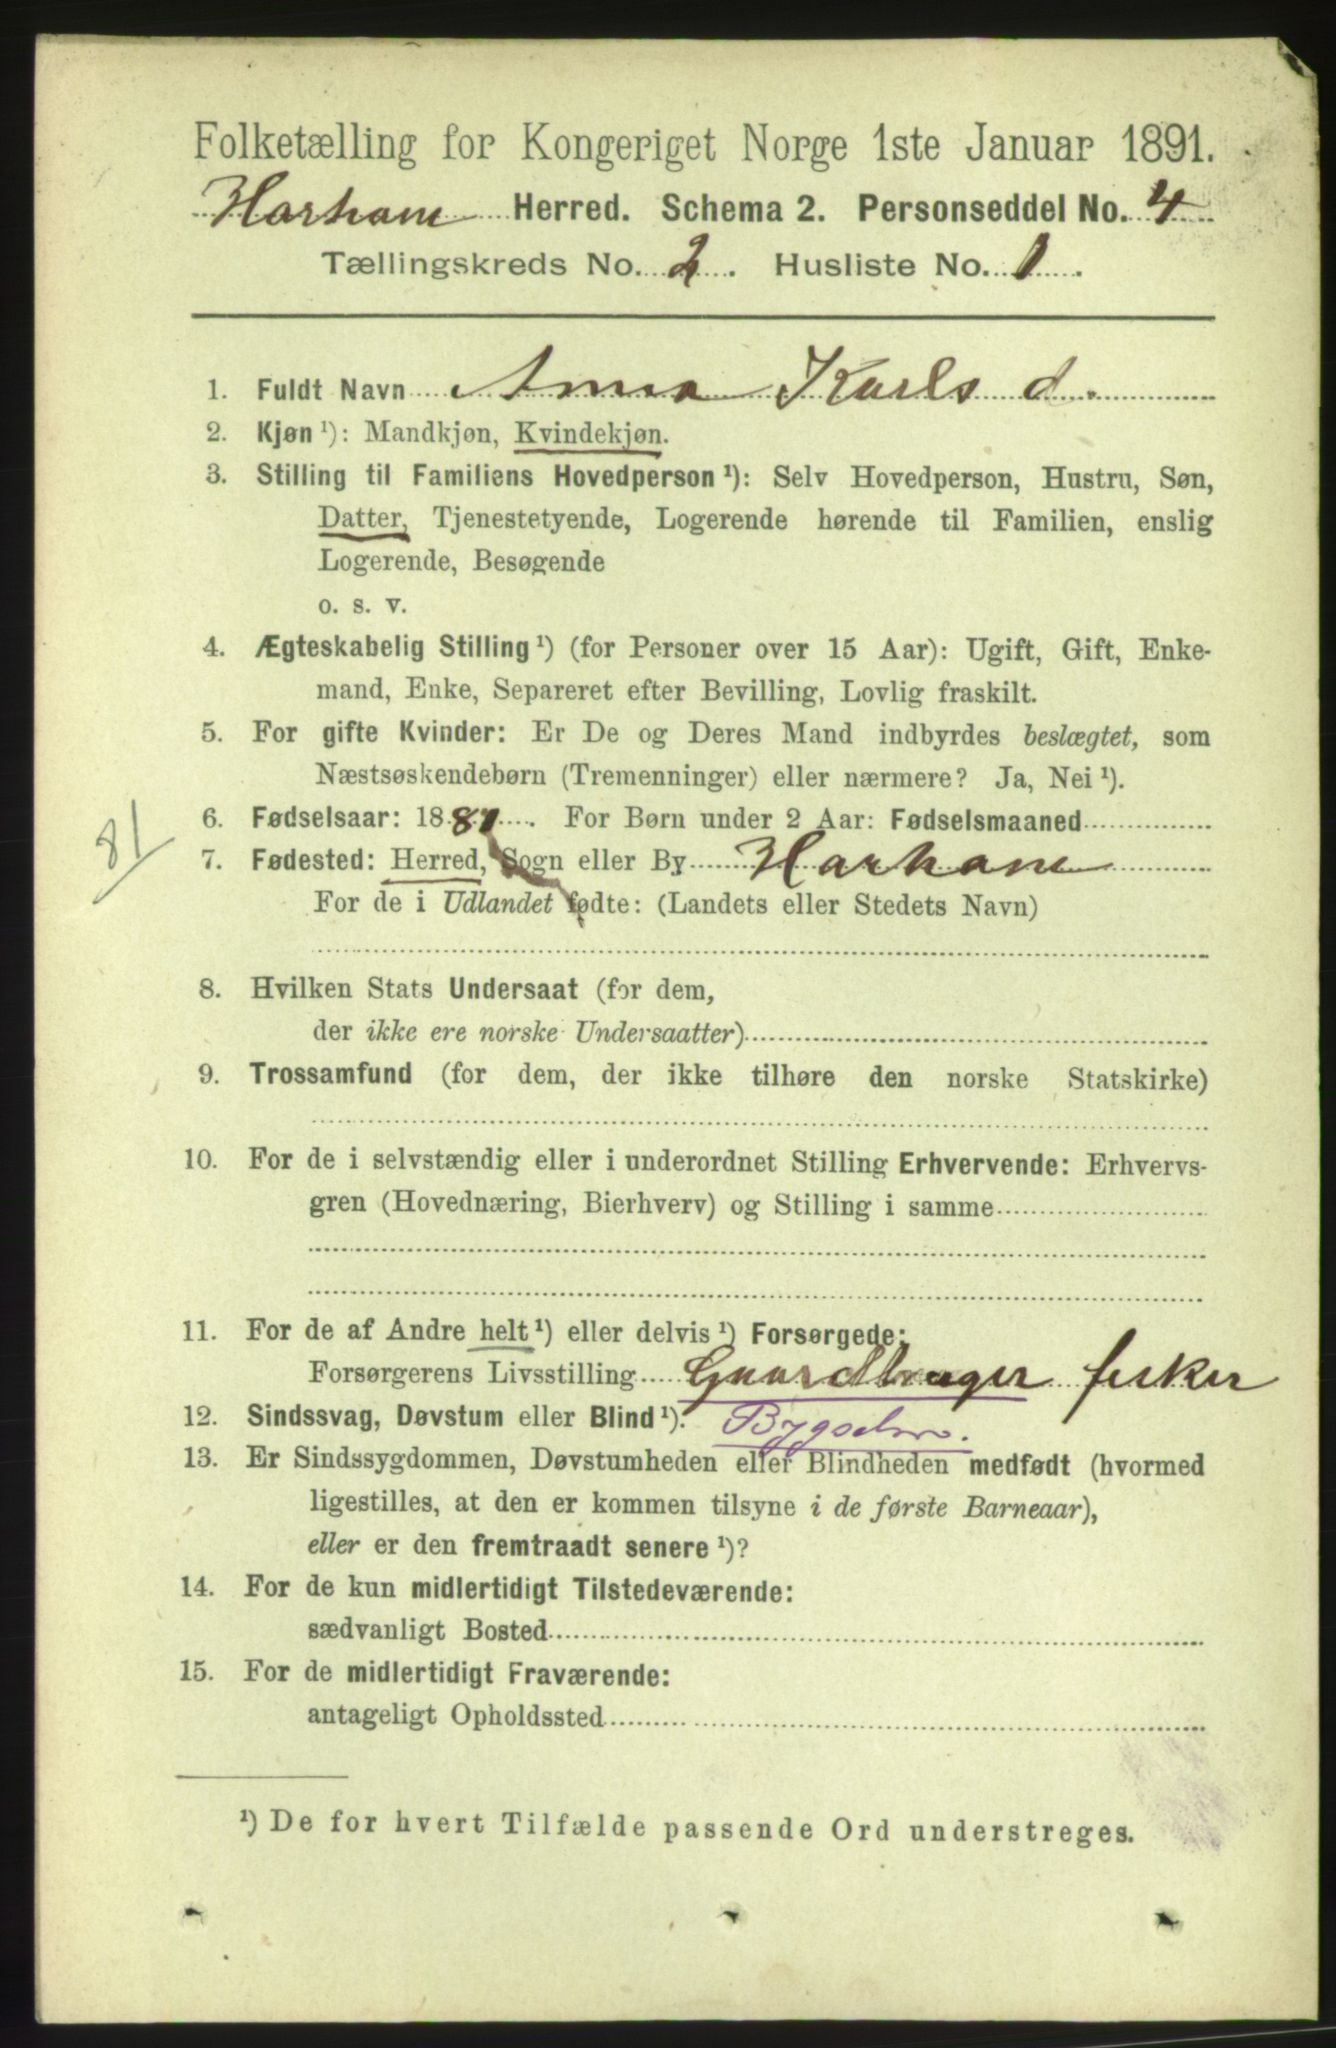 Folketælling for Kongeriget Norge 1ste Januar 1891.
Harham Herred. Schema 2. Personseddel No. 4
Tællingskreds No. 2. Husliste No. 1.
1. Fuldt Navn Anna Karls d.
2. Kjøn ¹): Mandkjøn, Kvindekjøn.
3. Stilling til Familiens Hovedperson ¹): Selv Hovedperson, Hustru, Søn,
Datter, Tjenestetyende, Logerende hørende til Familien, enslig
Logerende, Besøgende
o. s. v.
4. Ægteskabelig Stilling ¹) (for Personer over 15 Aar): Ugift, Gift, Enke-
mand, Enke, Separeret efter Bevilling, Lovlig fraskilt.
5. For gifte Kvinder: Er De og Deres Mand indbyrdes beslægtet, som
Næstsøskendebørn (Tremenninger) eller nærmere? Ja, Nei ¹).
81
6. Fødselsaar: 1881. For Børn under 2 Aar: Fødselsmaaned
7. Fødested: Herred, Sogn eller By Harham
For de i Udlandet fødte: (Landets eller Stedets Navn)
8. Hvilken Stats Undersaat (for dem,
der ikke ere norske Undersaatter)
9. Trossamfund (for dem, der ikke tilhøre den norske Statskirke)
10. For de i selvstændig eller i underordnet Stilling Erhvervende: Erhvervs-
gren (Hovednæring, Bierhverv) og Stilling i samme
11. For de af Andre helt ¹) eller delvis ¹) Forsørgede:
Forsørgerens Livsstilling Gaardbruger fisker
12. Sindssvag, Døvstum eller Blind ¹).
13. Er Sindssygdommen, Døvstumheden eller Blindheden medfødt (hvormed
ligestilles, at den er kommen tilsyne i de første Barneaar),
eller er den fremtraadt senere ¹)?
14. For de kun midlertidigt Tilstedeværende:
sædvanligt Bosted
15. For de midlertidigt Fraværende:
antageligt Opholdssted
¹) De for hvert Tilfælde passende Ord understreges.